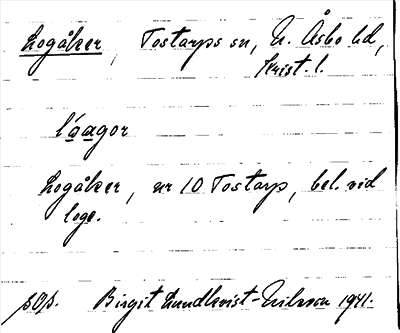 Logåker, Tostarps sn, N. Åsbo hd,
Krist. l.
l'åagor
Logåker, nr 10 Tostarp, bel. vid
loge.
sOp. Birgit Lundkvist-Nilsson 1941.